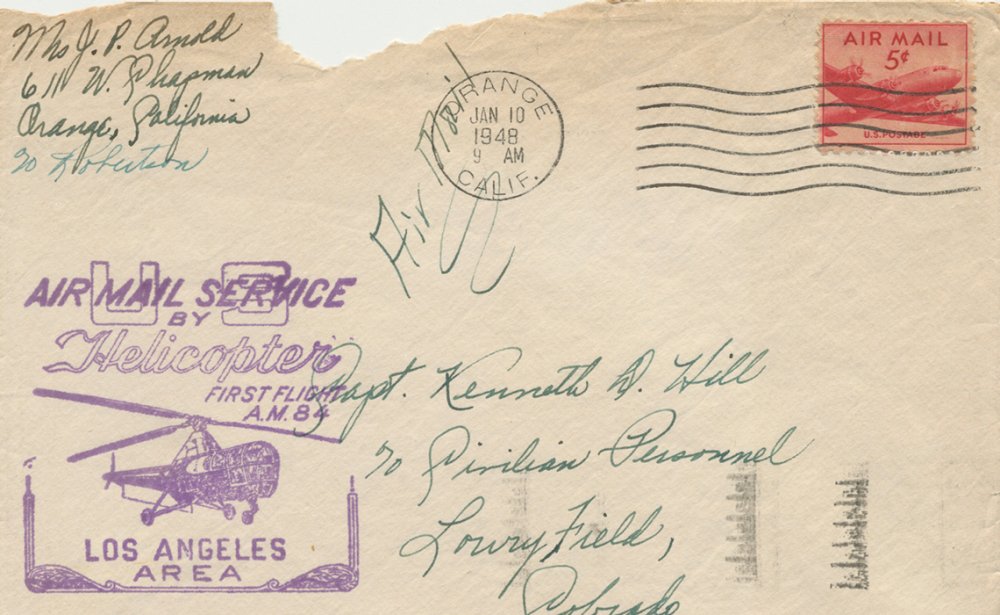 Mrs J. P. Arnold
611 W. Chapman
Orange, California
% Robertson
Air Mail
ORANGE
JAN 10
1948
9 AM
CALIF.
AIR MAIL
5¢
U.S. POSTAGE
U S
AIR MAIL SERVICE
BY
Helicopter
FIRST FLIGHT
A.M. 84
LOS ANGELES
AREA
Capt. Kenneth D. Hill
% Civilian Personnel
Lowry Field,
Colorado